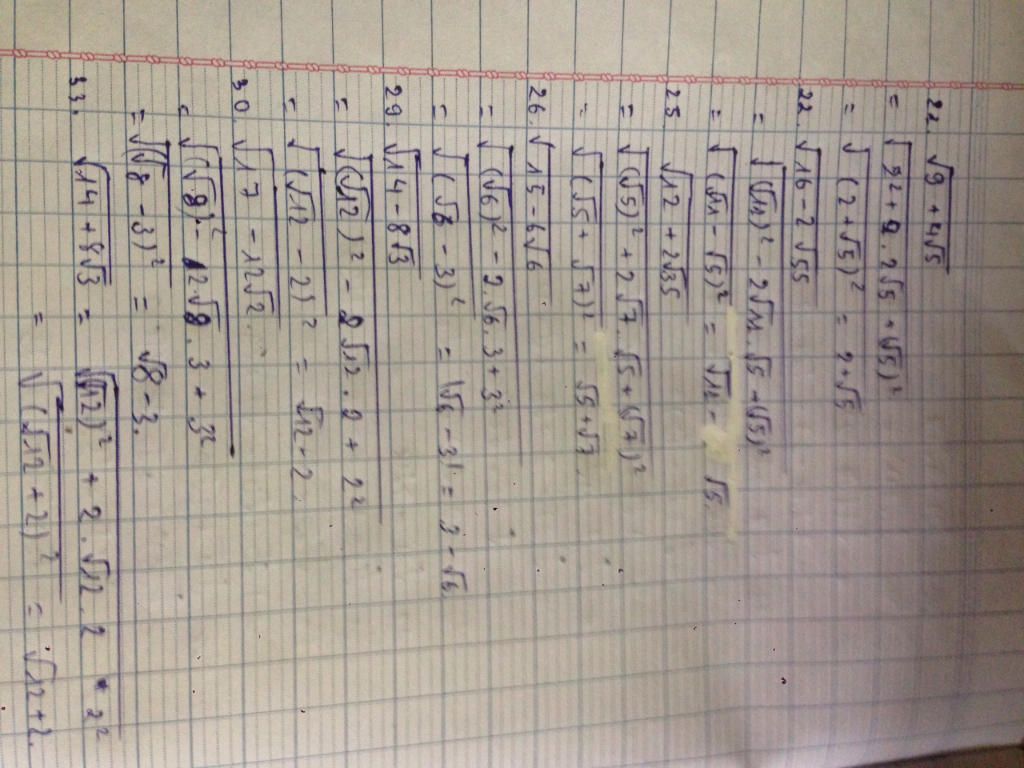 21. √9 + 4√5
= √2² + 2.2√5 + (√5)²
= √(2 + √5)² = 2 + √5
22. √16 - 2√55
= √(√11)² - 2√11.√5 + (√5)²
= √(√11 - √5)² = √11 - √5.
25. √12 + 2√35
= √(√5)² + 2√7.√5 + (√7)²
= √(√5 + √7)² = √5 + √7
26. √15 - 6√6
= √(√6)² - 2.√6.3 + 3²
= √(√6 - 3)² = |√6 - 3| = 3 - √6
29. √14 - 8√3
= √(√12)² - 2√12.2 + 2²
= √(√12 - 2)² = √12 - 2.
30. √17 - 12√2.
= √(√8)² - 2√8.3 + 3²
= √(√8 - 3)² = √8 - 3.
33. √14 + 8√3 = √(√12)² + 2.√12.2 + 2²
= √(√12 + 2)² = √12 + 2.